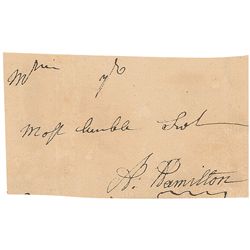 Most humble Servt
A. Hamilton